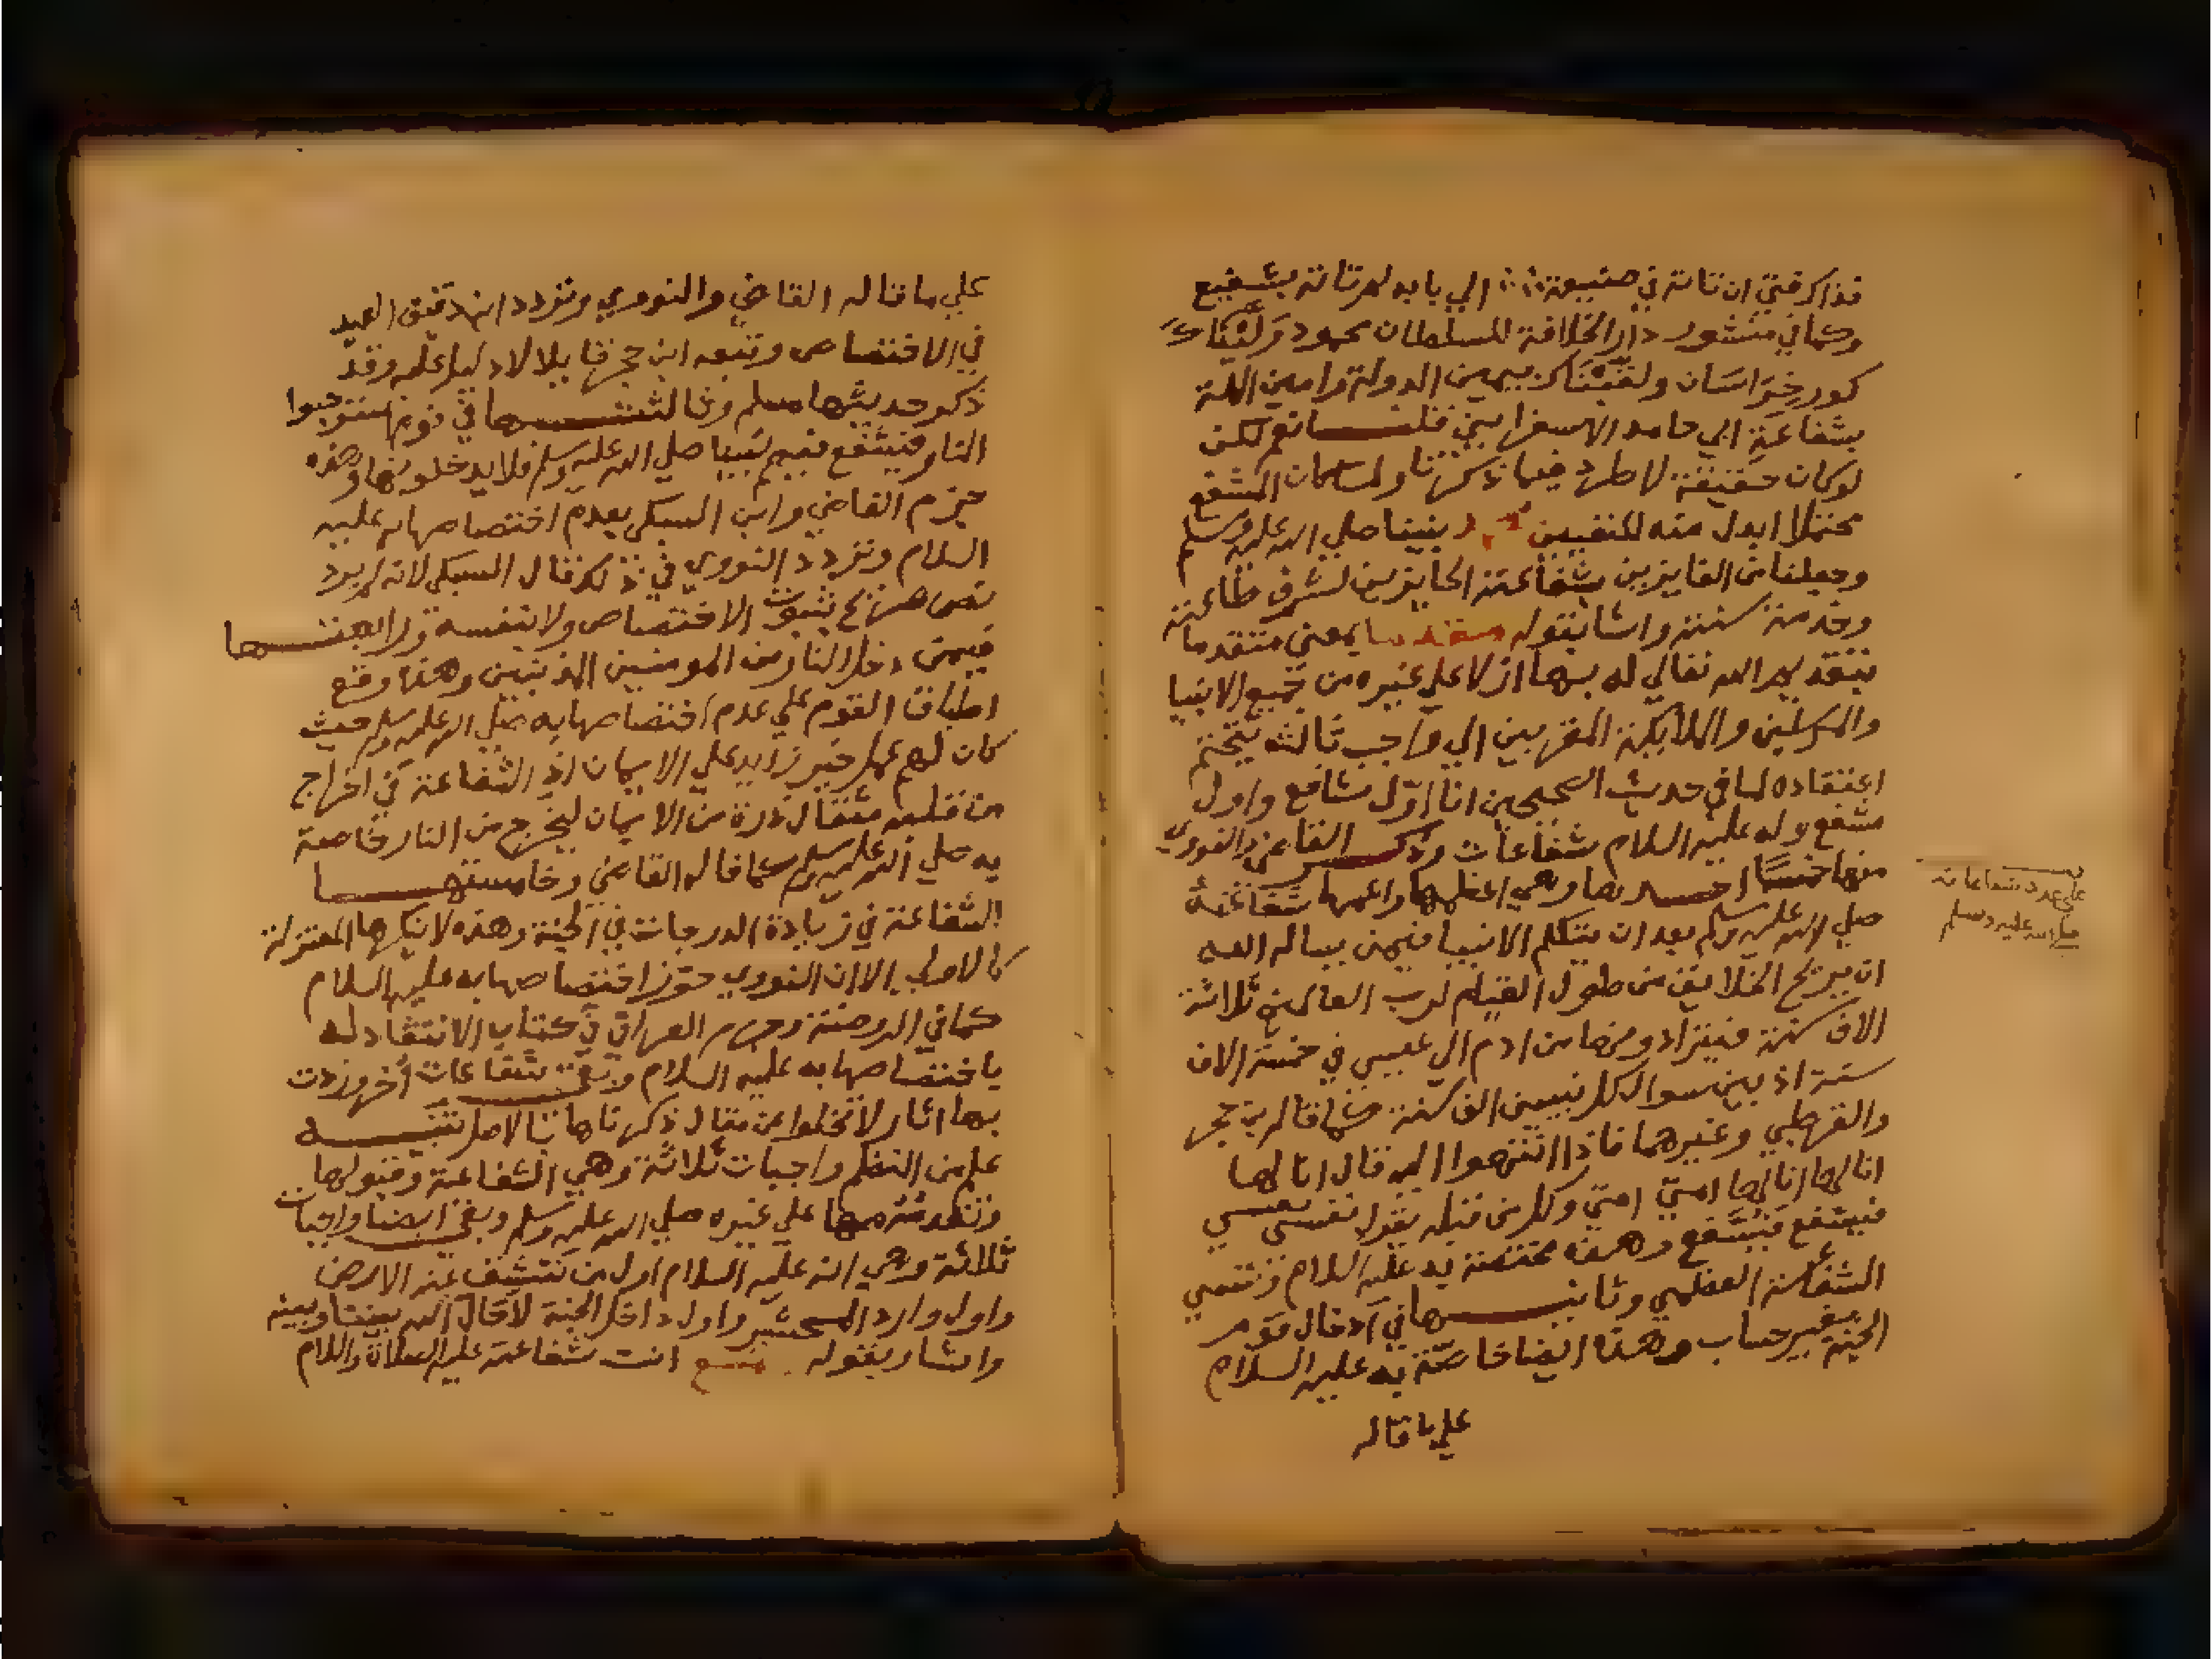 فذاك فتى ان تاته في صنيعة ∴ الي بابه لم تاته بشفيع
وكما في منشور دار الخلافة للسلطان محمود وليناك
كور خراسان ولقبناك بيمين الدولة وامين الملة
بشفاعة ابي حامد الاسفرايني قلت نعم لكن
لوكان حقيقة لاطرد فيما ذكرنا ولما كان المشفع
محتملا ابدل منه للتعيين محمد نبينا صلي الله عليه وسلم
وجعلنا من الفايزين بشفاعته الحايزين لشرف طاعته
وخدمة سنته واشا بقوله مقدما بمعني متقدما
بتقديم الله تعالي له بها ازلا علي غيره من جميع الانبيا
والمرسلين والملايكة المقربين الي واجب ثالث يتحتم
اعتقاده لما في حديث الصحيحين انا اول شافع واول
مشفع وله عليه السلام شفاعات وذكر القاضي والنووي
منها خمسا احدها وهي اعظمها واعمها شفاعته
صلي الله عليه وسلم بعد ان يتكلم الانبيا فيمن يساله الله
ان يريح الخلايق من طول القيام لرب العالمين ثلاثة
الاف سنة فيتراددونها من ادم الي عيسي في خمسة الاف
سنة اذ بين سوال كل نبيين الف سنة كما قاله بن حجر
والقرطبي وغيرهما فاذا انتهوا اليه قال انا لها
انا لها انا لها امتي امتي وكل من قبله يقول نفسي نفسي
فيشفع فيشفع وهذه مختصة به عليه السلام وتسمي
الشفاعة العظمي وثانيها في ادخال قوم
الجنة بغير حساب وهذه ايضا خاصة به عليه السلام
علي ما قاله
علي عدد شفاعاته
صلي الله عليه وسلم
علي ما قاله القاضي والنووي وتردد ابن دقيق العيد
في الاختصاص وتبعه ابن حجر قايلا لا دليل عليه وقد
ذكر حديثها مسلم وثالثتها في قوم استوجبوا
النار فيشفع فيهم نبينا صلي الله عليه وسلم فلا يدخلونها وهذه
جزم القاضي وابن السبكي بعدم اختصاصها به عليه
السلام وتردد النووي في ذلك قال السبكي لانه لم يرد
نص صريح بثبوت الاختصاص ولا بنفيه ورابعتها
فيمن دخل النار من المومنين المذنبين وهذه وقع
اطباق القوم علي عدم اختصاصها به صلي الله عليه وسلم حيث
كان لهم عمل خير زايد علي الايمان اذ الشفاعة في اخراج
من قلبه مثقال ذرة من الايمان ليخرج من النار خاصة
به صلي الله عليه وسلم كما قاله القاضي وخامستها
الشفاعة في زيادة الدرجات في الجنة وهذه لا ينكرها المعتزلة
كالاولي الا ان النووي جوز اختصاصها به عليه السلام
كما في الروضة وجزم العراقي في كتاب الانتقاد له
باختصاصها به عليه السلام وبقي شفاعات اخر وردت
بها اثار لا تخلوا من مقال ذكرناها بالاصل تنبيه
علم من النظم واجبات ثلاثة وهي الشفاعة وقبولها
وتقدمه بها علي غيره صلي الله عليه وسلم وبقي ايضا واجبات
ثلاثة وهي انه عليه السلام اول من تنشق عنه الارض
واول وارد المحشر واول داخل الجنة لا حال الله بيننا وبينه
واشار بقوله منع انت شفاعته عليه الصلاة والسلام